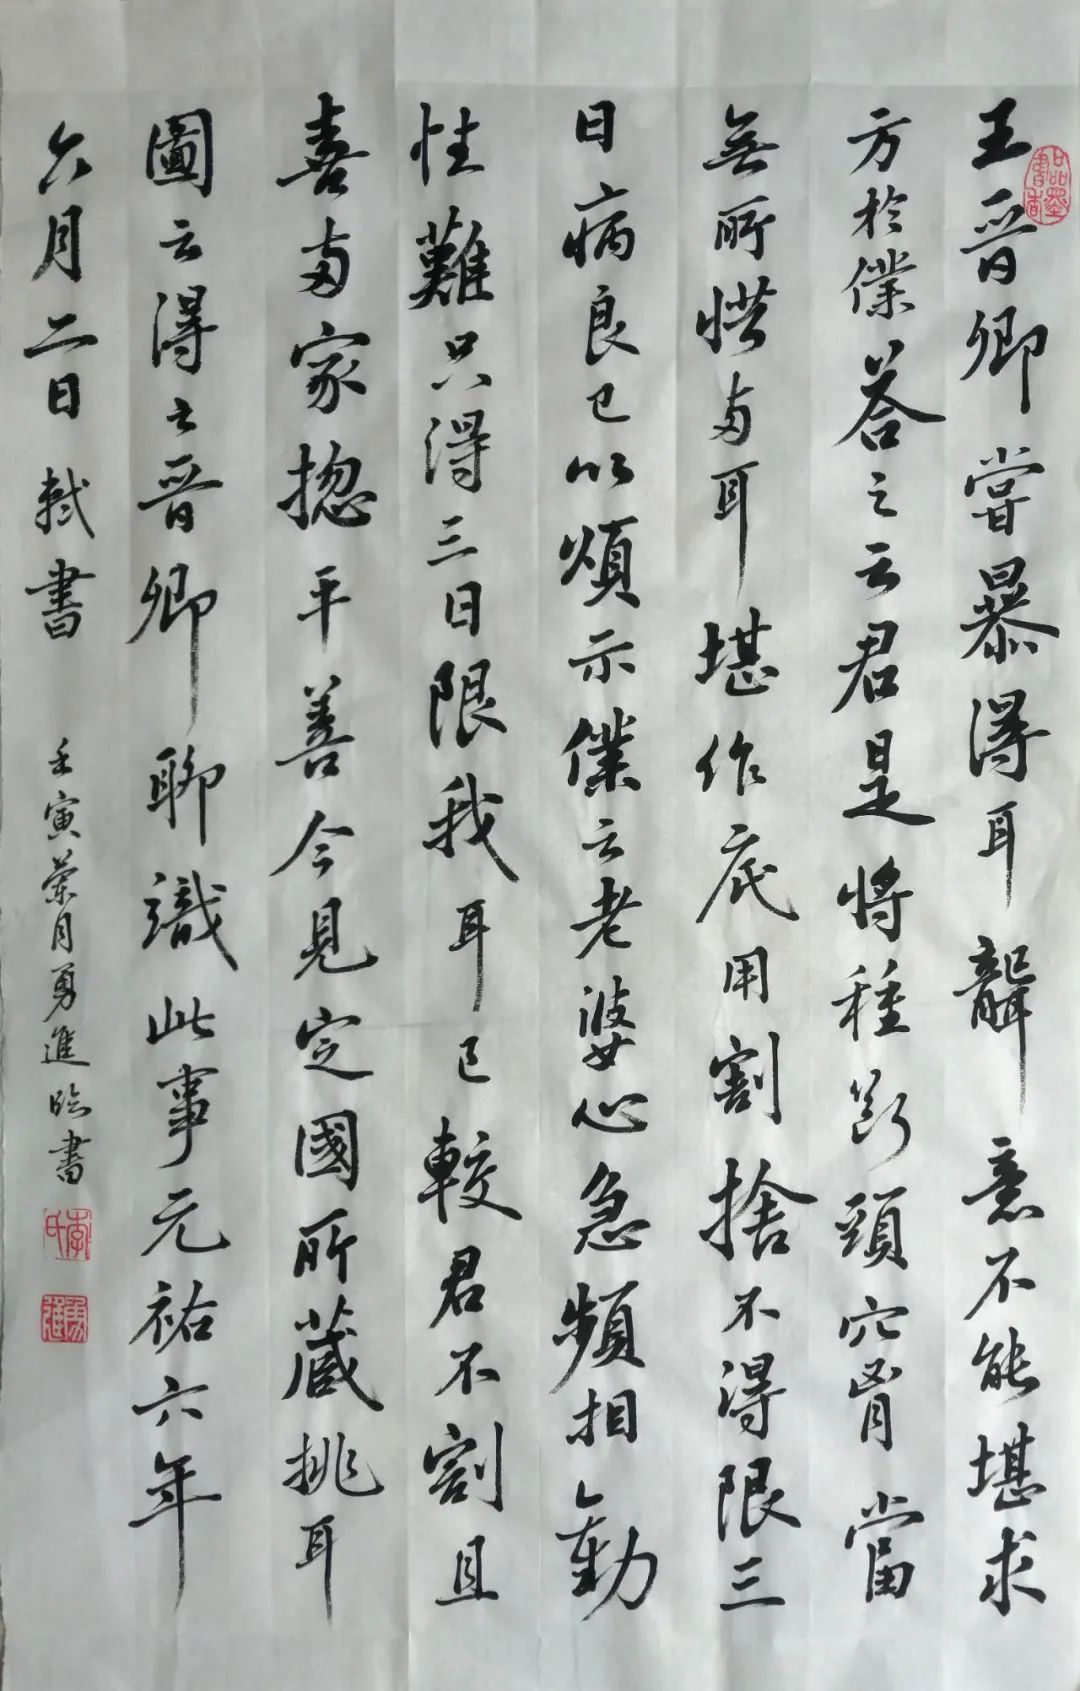 王晉卿嘗暴得耳聾意不能堪求
方於僕荅之云君是將種斷頭穴胷當
無所惜兩耳堪作底用割捨不得限三
日病良已以頌示僕云老婆心急頻相勸
性難只得三日限我耳已較君不割且
喜兩家揔平善今見定國所藏挑耳
圖云得之晉卿聊識此事元祐六年
六月二日軾書
壬寅蘭月勇進臨書
品墨書香
李氏
勇進